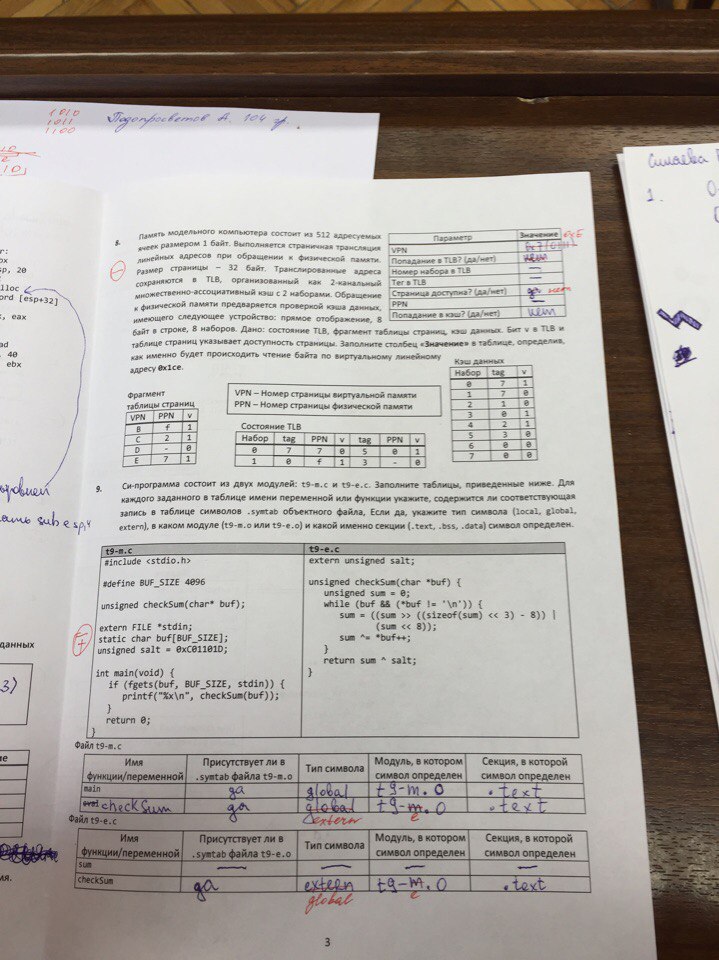 1010
1011
1100
Подопросветов А. 104 гр.
Силаева
1.
8. Память модельного компьютера состоит из 512 адресуемых
ячеек размером 1 байт. Выполняется страничная трансляция
линейных адресов при обращении к физической памяти.
Размер страницы – 32 байт. Транслированные адреса
сохраняются в TLB, организованный как 2-канальный
множественно-ассоциативный кэш с 2 наборами. Обращение
к физической памяти предваряется проверкой кэша данных,
имеющего следующее устройство: прямое отображение, 8
байт в строке, 8 наборов. Дано: состояние TLB, фрагмент таблицы страниц, кэш данных. Бит v в TLB и
таблице страниц указывает доступность страницы. Заполните столбец «Значение» в таблице, определив,
как именно будет происходить чтение байта по виртуальному линейному
адресу 0x1ce.
Параметр Значение 0xE
VPN
Попадание в TLB? (да/нет) нет
Номер набора в TLB —
Тег в TLB —
Страница доступна? (да/нет) да нет
PPN —
Попадание в кэш? (да/нет) нет
Кэш данных
Набор tag v
0 7 1
1 7 0
2 1 0
3 0 1
4 2 1
5 3 0
6 0 0
7 0 0
Фрагмент
таблицы страниц
VPN PPN v
B f 1
C 2 1
D - 0
E 7 1
VPN – Номер страницы виртуальной памяти
PPN – Номер страницы физической памяти
Состояние TLB
Набор tag PPN v tag PPN v
0 7 7 0 5 0 1
1 0 f 1 3 - 0
9. Си-программа состоит из двух модулей: t9-m.c и t9-e.c. Заполните таблицы, приведенные ниже. Для
каждого заданного в таблице имени переменной или функции укажите, содержится ли соответствующая
запись в таблице символов .symtab объектного файла, Если да, укажите тип символа (local, global,
extern), в каком модуле (t9-m.o или t9-e.o) и какой именно секции (.text, .bss, .data) символ определен.
t9-m.c
#include <stdio.h>
#define BUF_SIZE 4096
unsigned checkSum(char* buf);
extern FILE *stdin;
static char buf[BUF_SIZE];
unsigned salt = 0xC01101D;
int main(void) {
if (fgets(buf, BUF_SIZE, stdin)) {
printf("%x\n", checkSum(buf));
}
return 0;
}
t9-e.c
extern unsigned salt;
unsigned checkSum(char *buf) {
unsigned sum = 0;
while (buf && (*buf != '\n')) {
sum = ((sum >> ((sizeof(sum) << 3) - 8)) |
(sum << 8));
sum ^= *buf++;
}
return sum ^ salt;
}
Файл t9-m.c
Имя функции/переменной Присутствует ли в .symtab файла t9-m.o Тип символа Модуль, в котором символ определен Секция, в которой символ определен
main да global t9-m.o .text
checkSum да global t9-m.o .text
extern e
Файл t9-e.c
Имя функции/переменной Присутствует ли в .symtab файла t9-e.o Тип символа Модуль, в котором символ определен Секция, в которой символ определен
sum — — — —
checkSum да extern t9-m.o .text
global e
3
sp, 20
alloc
ord [esp+32]
, eax
ad
40
ebx
sub esp,4
данных